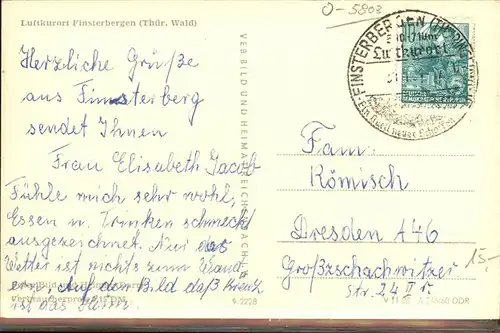 O-5802
Luftkurort Finsterbergen (Thür. Wald)
Herzliche Grüße
aus Finsterberg
sendet Ihnen
Frau Elisabeth Jacob
Fühle mich sehr wohl,
Essen u. Trinken schmeckt
ausgezeichnet. Nur das
Wetter ist nichts zum Wand
ern. Auf dem Bild das Kreuz
ist das Heim.
Verbraucherpreis DM
9-2228
VEB BILD UND HEIMAT REICHENBACH
FINSTERBERGEN (THÜR.
Luftkurort
DEUTSCHE
Fam.
Römisch
Dresden A 46
Großzschachwitzer
Str. 24 II r.
15,-
DDR